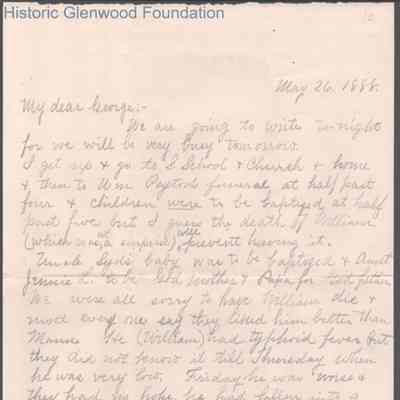 Historic Glenwood Foundation
May 26, 1888.
My dear George:-
We are going to write to-night
for we will be very busy tomorrow.
I get up & go to S School & Church & home
& then to Wm funeral at half past
four & children were to be baptized at half
past five but I guess the death of William
(which was a surprise) will prevent having it.
Uncle baby was to be baptized & Aunt
Jennie L. to be God mother & Papa for
We were all sorry to have William die &
most every one say they liked him better than
He (William) had typhoid fever but
they did not know it till Thursday when
he was very low. Friday he was worse &
they had no hope he had fallen into a